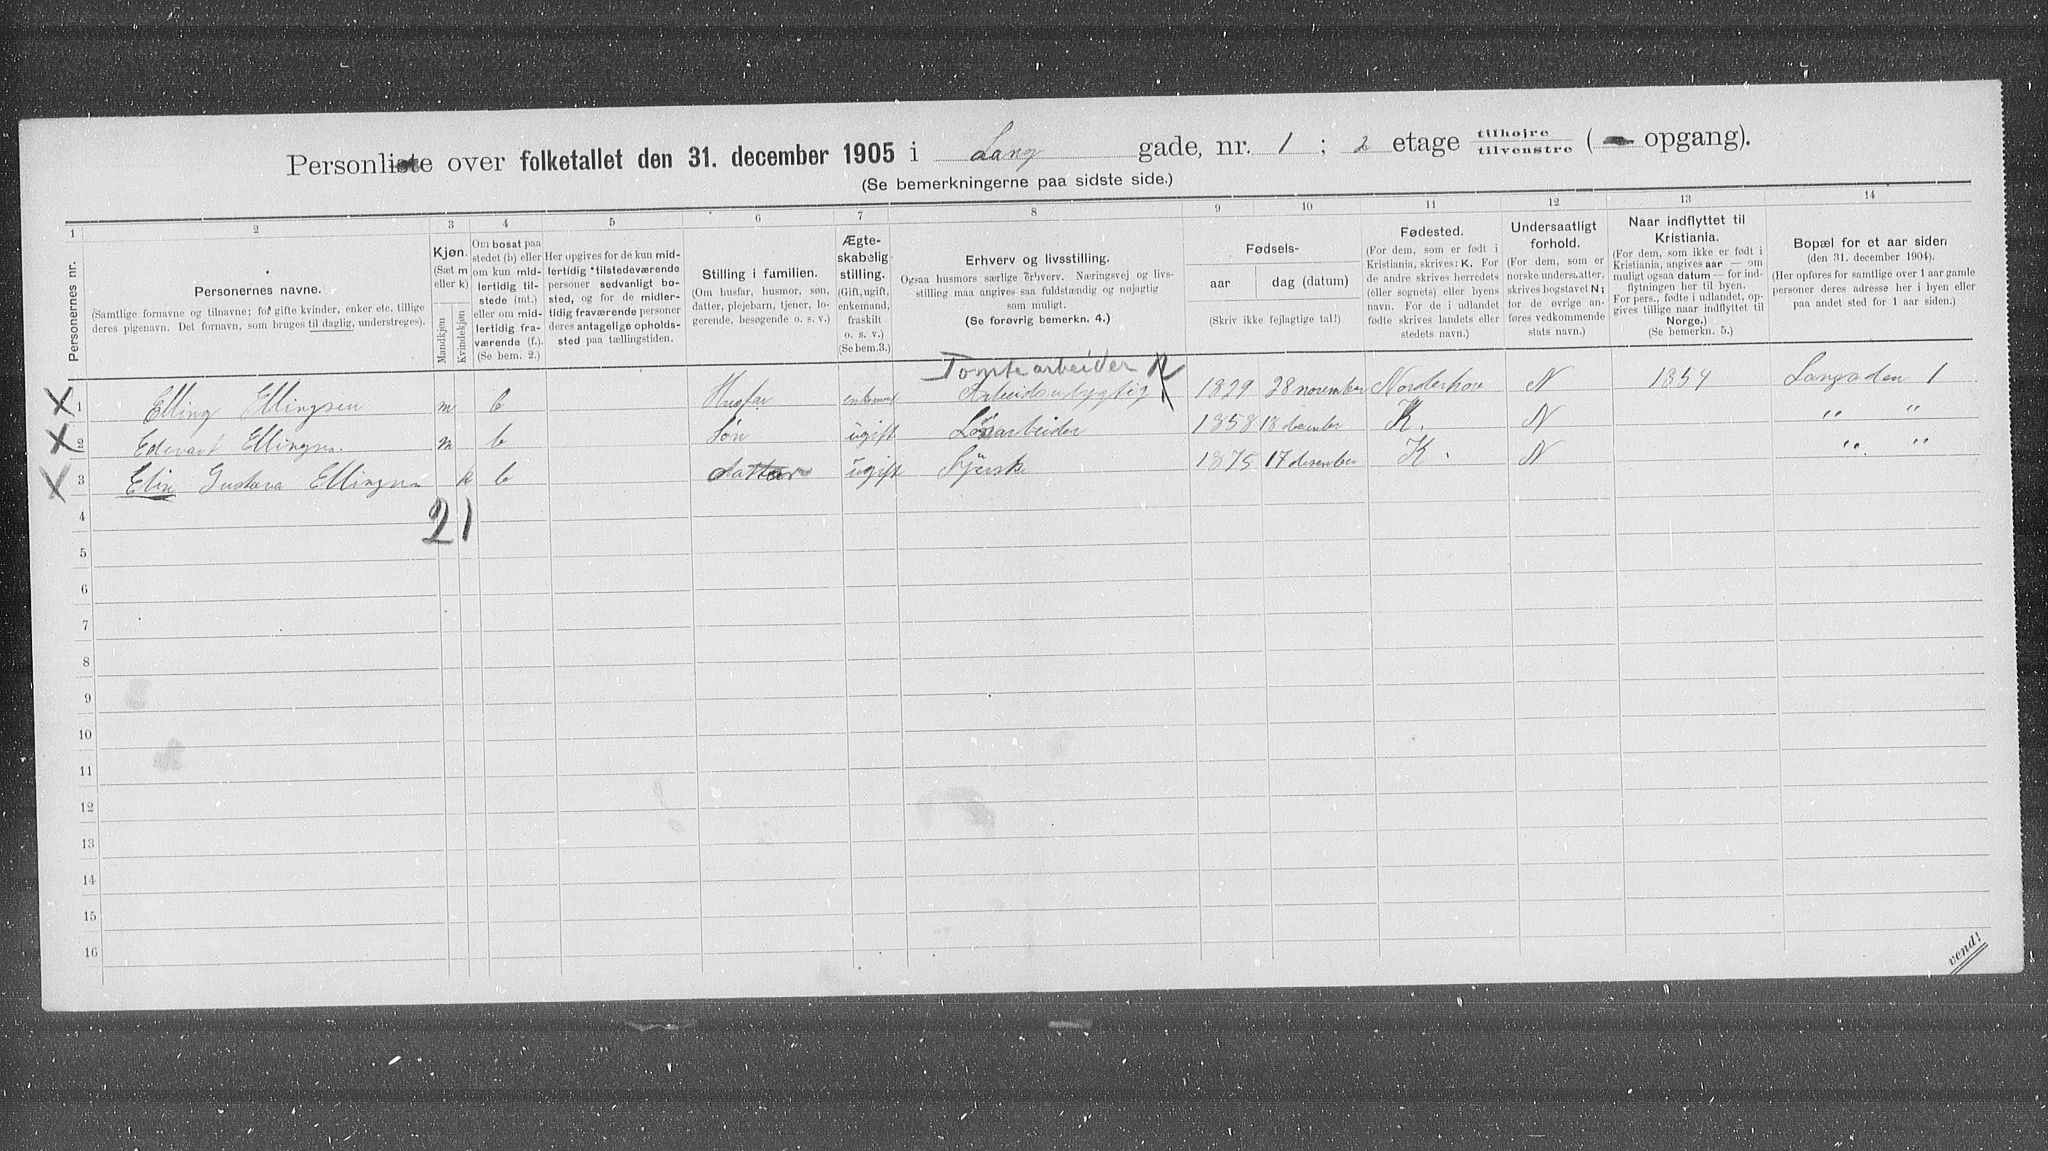 Personliste over folketallet den 31. december 1905 i Lang gade, nr. 1 ; 2 etage tilhøjre tilvenstre ( opgang).
(Se bemerkningerne paa sidste side.)
1 2 3 4 5 6 7 8 9 10 11 12 13 14
Personernes nr.
Personernes navne.
(Samtlige fornavne og tilnavne; for gifte kvinder, enker etc. tillige
deres pigenavn. Det fornavn, som bruges til daglig, understreges).
Kjøn.
(Sæt m
eller k)
Mandkjøn
Kvindekjøn
Om bosat paa
stedet (b) eller
om kun mid-
lertidig til-
stede (mt.)
eller om mid-
lertidig fra-
værende (f.).
(Se bem. 2.)
Her opgives for de kun mid-
lertidig tilstedeværende
personer sedvanligt bo-
sted, og for de midler-
tidig fraværende personer
deres antagelige opholds-
sted paa tællingstiden.
Stilling i familien.
(Om husfar, husmor, søn,
datter, plejebarn, tjener, lo-
gerende, besøgende o. s. v.)
Ægte-
skabelig
stilling.
(Gift, ugift,
enkemand,
fraskilt
o. s. v.)
(Se bem.3.)
Erhverv og livsstilling.
Ogsaa husmors særlige erhverv. Næringsvej og livs-
stilling maa angives saa fuldstændig og nøjagtig
som muligt.
(Se forøvrig bemerkn. 4.)
Fødsels-
aar dag (datum)
(Skriv ikke fejlagtige tal!)
Fødested.
(For dem, som er født i
Kristiania, skrives: K. For
de andre skrives herredets
(eller sognets) eller byens
navn. For de i udlandet
fødte skrives landets eller
stedets navn.)
Undersaatligt
forhold.
(For dem, som er
norske undersaatter,
skrives bogstavet N;
for de øvrige an-
føres vedkommende
stats navn.)
Naar indflyttet til
Kristiania.
(For dem, som ikke er født i
Kristiania, angives aar — om
muligt ogsaa datum — for ind-
flytningen her til byen.
For pers., fødte i udlandet, op-
gives tillige naar indflyttet til
Norge.)
(Se bemerkn. 5.)
Bopæl for et aar siden
(den 31. december 1904).
(Her opføres for samtlige over 1 aar gamle
personer deres adresse her i byen eller
paa andet sted for 1 aar siden.)
Tomtearbeider
1 Elling Ellingsen m b Husfar enkemand Arbeidsudygtig 1829 28 november Norderhove N 1854 Langaden 1
2 Edevart Ellingsen. m b Søn ugift Løsarbeider 1858 18 december K. N " "
3 Elise Gustava Ellingsen k b datter ugift Syerske 1875 17 desember K. N " "
4 2 1
5
6
7
8
9
10
11
12
13
14
15
16
vend!